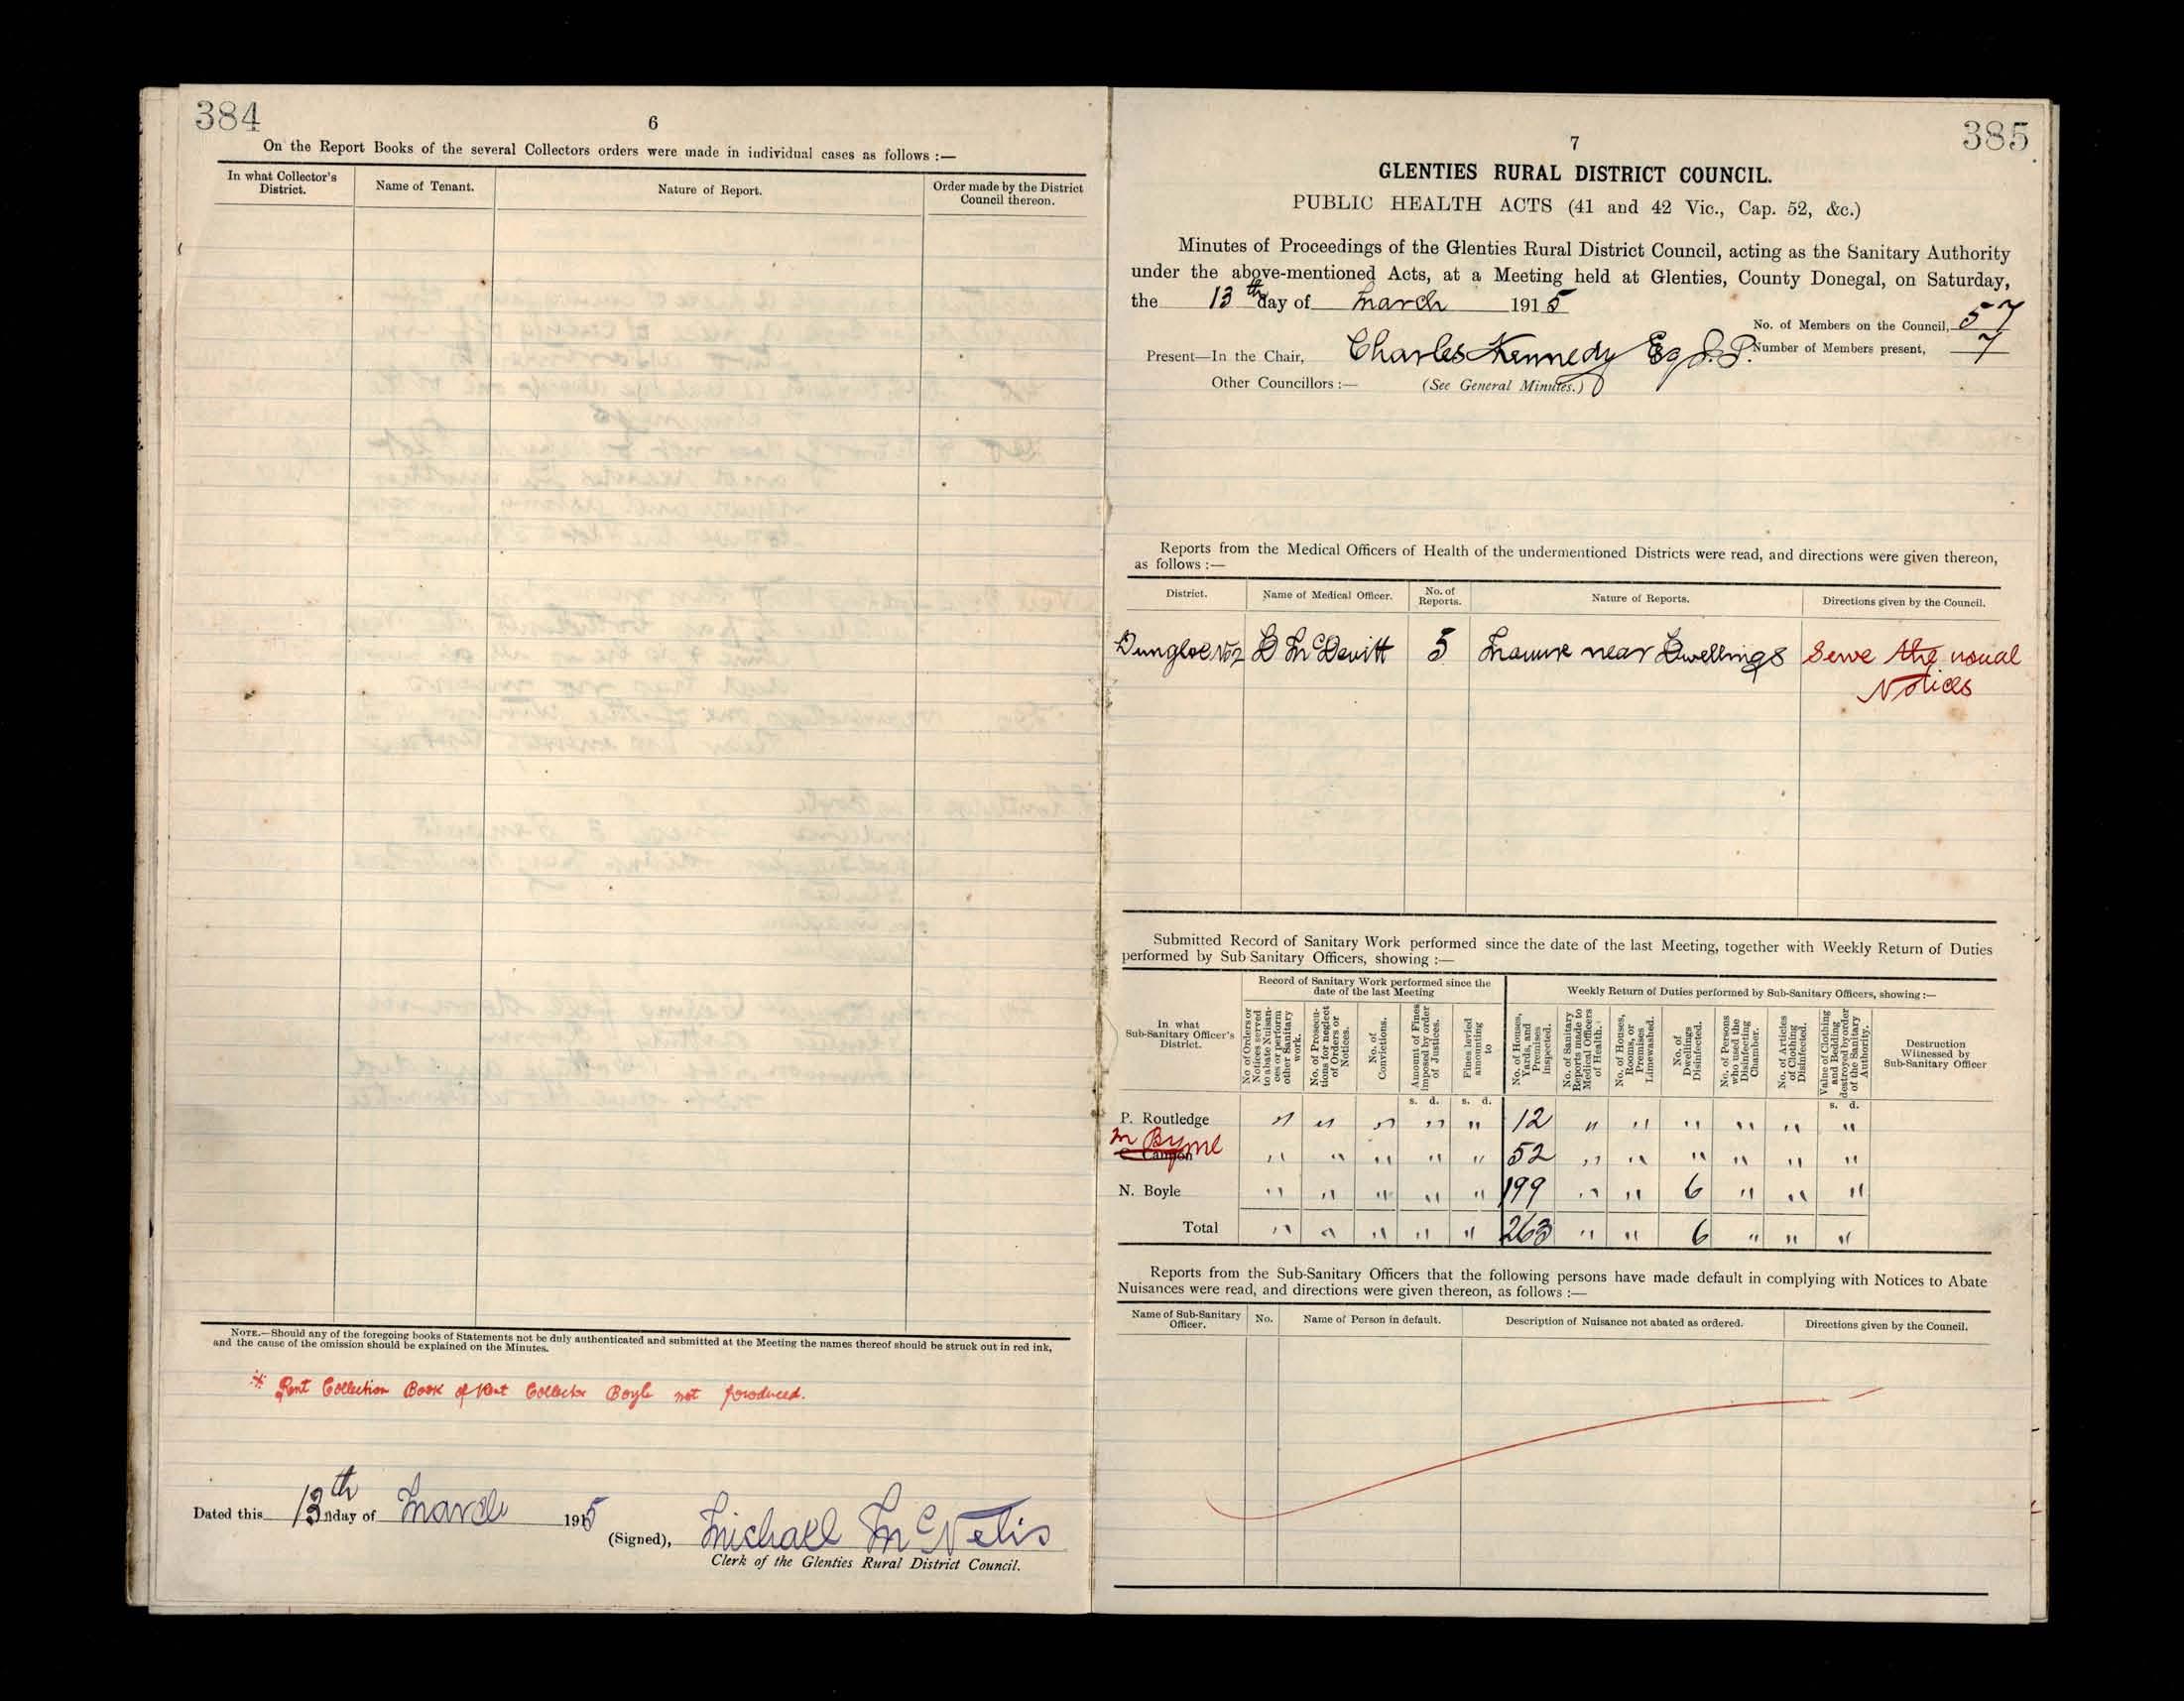 384
6
On the Report Books of the several Collectors orders were made in individual cases as follows :—
In what Collector's District.
Name of Tenant.
Nature of Report.
Order made by the District Council thereon.
NOTE.—Should any of the foregoing books of Statements not be duly authenticated and submitted at the Meeting the names thereof should be struck out in red ink,
and the cause of the omission should be explained on the Minutes.
Rent Collection Book of Rent Collector Boyle not produced.
Dated this 13th day of March 1915
(Signed), Michael McNelis
Clerk of the Glenties Rural District Council.
385
7
GLENTIES RURAL DISTRICT COUNCIL.
PUBLIC HEALTH ACTS (41 and 42 Vic., Cap. 52, &c.)
Minutes of Proceedings of the Glenties Rural District Council, acting as the Sanitary Authority
under the above-mentioned Acts, at a Meeting held at Glenties, County Donegal, on Saturday,
the 13th day of March 1915
No. of Members on the Council, 57
Number of Members present, 7
Present—In the Chair, Charles Kennedy Esq J.P.
Other Councillors :— (See General Minutes.)
Reports from the Medical Officers of Health of the undermentioned Districts were read, and directions were given thereon,
as follows :—
District. Name of Medical Officer. No. of Reports. Nature of Reports. Directions given by the Council.
Dungloe No 2 D McDevitt 5 Manure near Dwellings Serve the usual
Notices
Submitted Record of Sanitary Work performed since the date of the last Meeting, together with Weekly Return of Duties
performed by Sub-Sanitary Officers, showing :—
Record of Sanitary Work performed since the date of the last Meeting
Weekly Return of Duties performed by Sub-Sanitary Officers, showing :—
In what Sub-Sanitary Officer's District.
No of Orders or Notices served to abate Nuisances or perform other Sanitary work.
No. of Prosecutions for neglect of Orders or Notices.
No. of Convictions.
Amount of Fines imposed by order of Justices.
Fines levied amounting to
No. of Houses, Yards, and Premises Inspected.
No. of Sanitary Reports made to Medical Officers of Health.
No. of Houses, Rooms, or Premises Limewashed.
No. of Dwellings Disinfected.
No. of Persons who used the Disinfecting Chamber.
No. of Articles of Clothing Disinfected.
Value of Clothing and Bedding destroyed by order of the Sanitary Authority.
Destruction Witnessed by Sub-Sanitary Officer
s. d. s. d. s. d.
P. Routledge " " " " " 12 " " " " " "
M Byrne
C Cannon " " " " " 52 " " " " " "
N. Boyle " " " " " 199 " " 6 " " "
Total " " " " " 263 " " 6 " " "
Reports from the Sub-Sanitary Officers that the following persons have made default in complying with Notices to Abate
Nuisances were read, and directions were given thereon, as follows :—
Name of Sub-Sanitary Officer. No. Name of Person in default. Description of Nuisance not abated as ordered. Directions given by the Council.